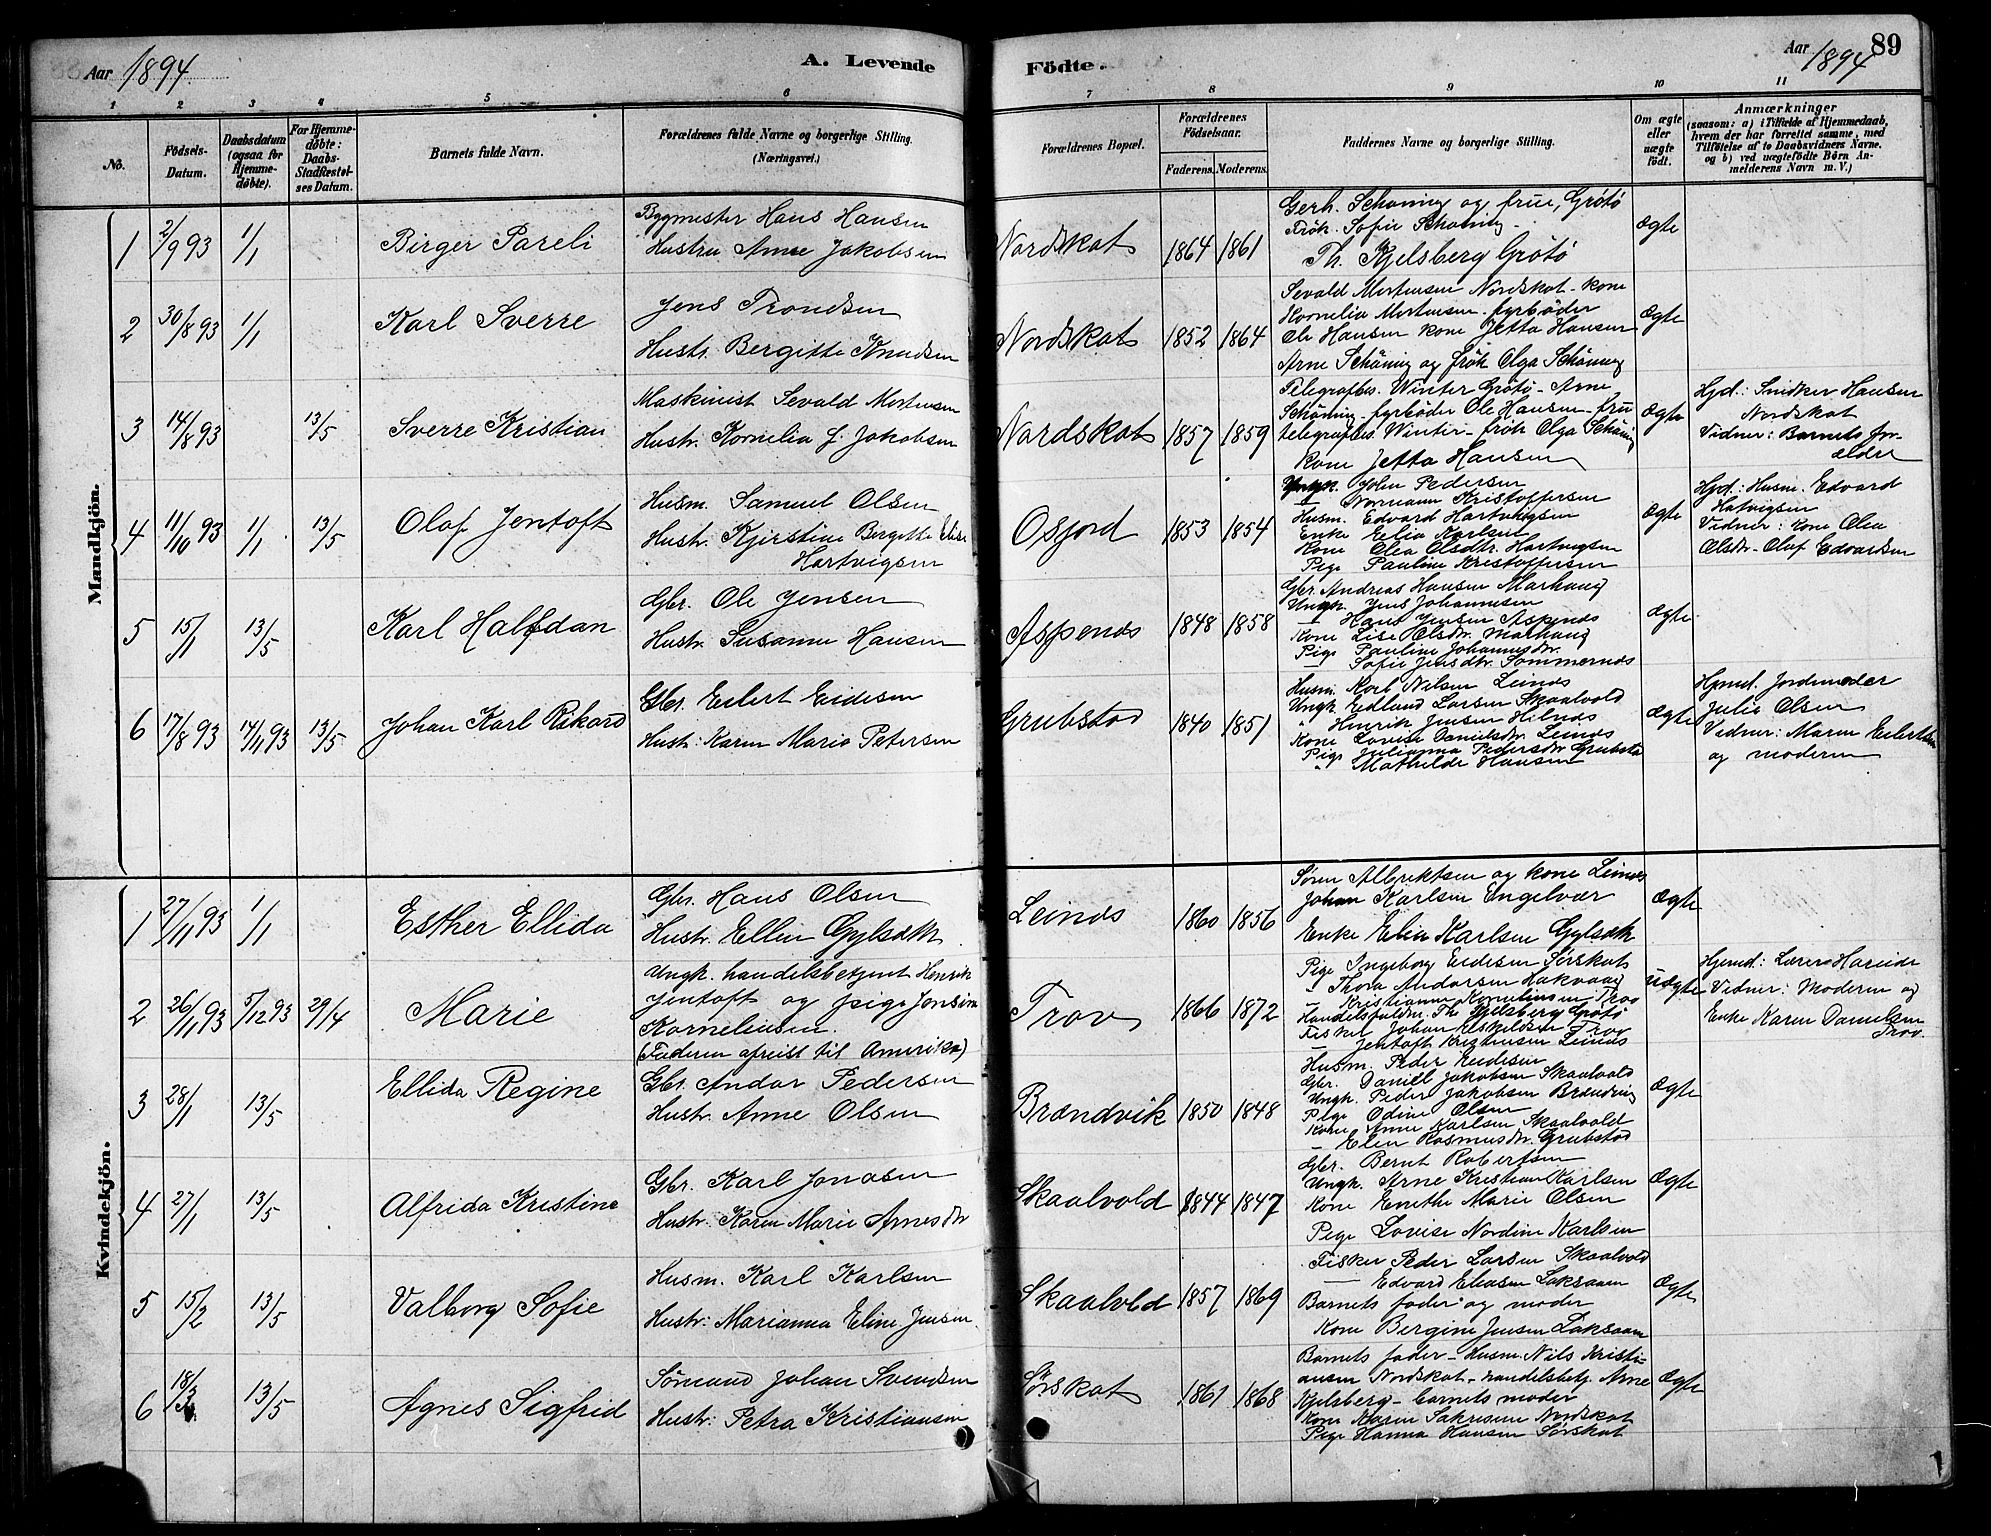 Aar 1894
A. Levende
Födte.
Aar 1894
89
1 2 3 4 5 6 7 8 9 10 11
No.
Födsels-Datum.
Daabsdatum (ogsaa for Hjemme-döbte).
For Hjemme-döbte: Daabs-Stadfæstel-ses Datum.
Barnets fulde Navn.
Forældrenes fulde Navne og borgerlige Stilling. (Næringsvei.)
Forældrenes Bopæl.
Forældrenes Födselsaar.
Faderens. Moderens.
Faddernes Navne og borgerlige Stilling.
Om ægte eller uægte födt.
Anmærkninger
(saasom: a) i Tilfælde af Hjemmedaab,
hvem der har forrettet samme, med
Tilföielse af to Daabsvidners Navne.
og b) ved uægtefödte Börn An-
melderens Navn m.V.)
Mandkjön.
1 2/9 93 1/1 Birger Pareli
Bygmester Hans Hansen
Hustru Anne Jakobsen
Nordskot 1864 1861
Gerh. Schøning og frue, Grøtø
Frøk. Sofie Schøning
Th. Kjelsberg Grøtø
Ægte
2 30/8 93 1/1 Karl Sverre
Jens Trondsen
Hustr. Bergitte Knudsen
Nordskot 1852 1864
Sevald Mortensen Nordskot - kone
Kornelia Mortensen - fyrbøder
Ole Hansen kone Jetta Hansen
Arne Schöning og frøk Olga Schöning
Ægte
3 14/8 93 13/5 Sverre Kristian
Maskinist Sevald Mortensen
Hustr. Kornelia J. Jakobsen
Nordskot 1857 1859
Telegrafbes. Winter Grøtø - Arne
Schöning - fyrbøder Ole Hansen - fru
telegrafbes. Winter - frøk Olga Schöning
Kone Jetta Hansen
Ægte
Hjd: Snidker Hansen
Nordskot
Vidner: Barnets for-
ældre
4 11/10 93 1/1 13/5 Olaf Jentoft
Husm. Samuel Olsen
Hustr. Kjerstine Bergitte Elise
Hartvigsen
Osfjord 1853 1854
Ungk. John Pedersen
Normann Kristoffersen
Husm. Edvard Hartvigsen
Enke Elia Karlsen
Kone Olea Olsdtr. Hartvigsen
Pige Pauline Kristoffersen
Ægte
Hjd: Husm. Edvard
Hatvigsen
Vidner: kone Olea
Olsdr - Olaf Edvardsen
5 15/1 13/5 Karl Halfdan
Gbr. Ole Jensen
Hustr. Susanne Hansen
Aspenes 1848 1858
Gbr. Andreas Hansen Marhaug
Ungk. Jens Johannesen
Hans Jensen Aspenes
Kone Lise Olsdtr. Marhaug
Pige Pauline Johannesdtr.
Sofie Jensdtr. Sommernes
Ægte
6 17/8 93 14/11 93 13/5 Johan Karl Rikard
Gbr. Eilert Eidesen
Hustr: Karen Maria Petersen
Grubstad 1840 1851
Husm Karl Nilsen Leines
Ungk. Edland Larsen Skaalvold
" Henrik Jensen Hilnes
Kone Lovise Danielsdtr. Leines
Pige Julianna Pedersdtr Grubstad
" Mathilde Hansen
Ægte
Hjmd. Jordemoder
Julie Olsen
Vidner: Maren Eilertsen
og moderen
Kvindekjön.
1 27/11 93 1/1 Esther Ellida
Gbr. Hans Olsen
Hustr. Ellen Gylsdtr
Leines 1860 1856
Søren Albriktsen og kone Leines
Johan Karlsen Engelvær
Enke Elen Karlsen Gylseth
Ægte
2 26/11 93 5/12 93 29/4 Marie
Ungk. handelsbetjent Henrik
Jentoft og pige Jonsine
Korneliusen.
(Faderen afreist til Amerika)
Trov 1866 1872
Pige Ingeborg Eidesen Sørskot
Thora Andorsen Hakvaag
Kristianne Korneliusen Trov
Handelsfuldm. Th Kjelsberg Grøtø
Fisker Johan Eskildsen Trov
Jentoft Kristensen Leines
Uægte
Hjemd: Lærer Hareide
Vidner: Moderen og
Enke Karen Danielsen
Trov.
3 28/1 13/5 Ellida Regine
Gbr. Andor Pedersen
Hustr. Anne Olsen
Brændvik 1850 1848
Husm. Peder Eidesen
Gbr. Daniel Jakobsen Skaalvold
Ungk. Peder Jakobsen Brændvig
Pige Odine Olsen
Kone Anne Karlsen Skaalvold
Elen Rasmusdtr. Grubstad
Ægte
4 27/1 13/5 Alfrida Kristine
Gbr. Karl Jonasen
Hustr. Karen Marie Arnesdtr
Skaalvold 1844 1847
Gbr. Bernt Robertsen
Ungk. Arne Kristian Karlsen
Kone Enethe Marie Olsen
Pige Lovise Nordine Karlsen
Ægte
5 15/2 13/5 Valborg Sofie
Husm. Karl Karlsen
Hustr: Marianna Eline Jensen
Skaalvold 1857 1869
Fisker Peder Larsen Skaalvold
Edvard Eliasen Laksaaen
Barnets fader og moder
Kone Bergine Jensen Laksaaen
Ægte
6 18/3 13/5 Agnes Sigfrid
Sømand Johan Svendsen
Hustr: Petra Kristiansen
Sørskot 1861 1868
Barnets fader - Husm. Nils Kristi-
ansen Nordskot - handelsbetj. Arne
Kjelsberg - barnets moder
Kone Karen Sakresen Nordskot
Pige Hanna Hansen Sørskot
Ægte